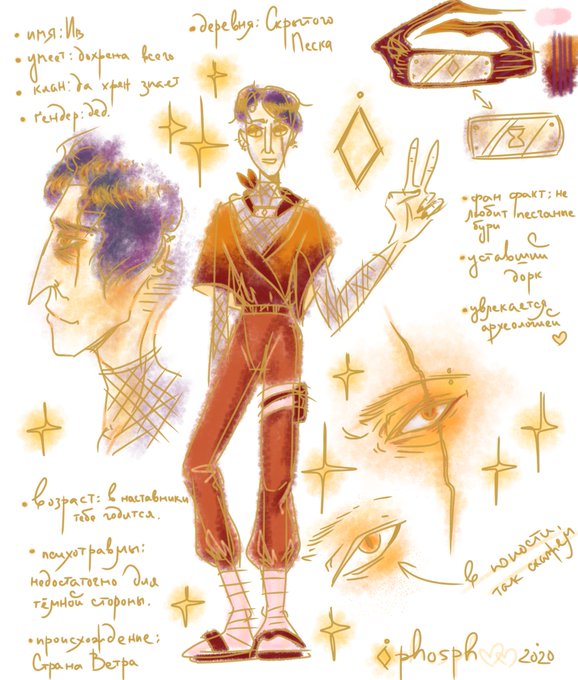 • имя: Ив
• умеет: дохрена всего
• клан: да хрен знает
• гендер: дед.
• деревня: Скрытого
Песка
• фан факт: не
любит песчаные
бури
• уставший
дорк
• увлекается
археологией
• возраст: в наставники
тебе годится.
• психотравмы:
недостаточно для
тёмной стороны.
• происхождение:
Страна Ветра
в юности
так
phosph 2020